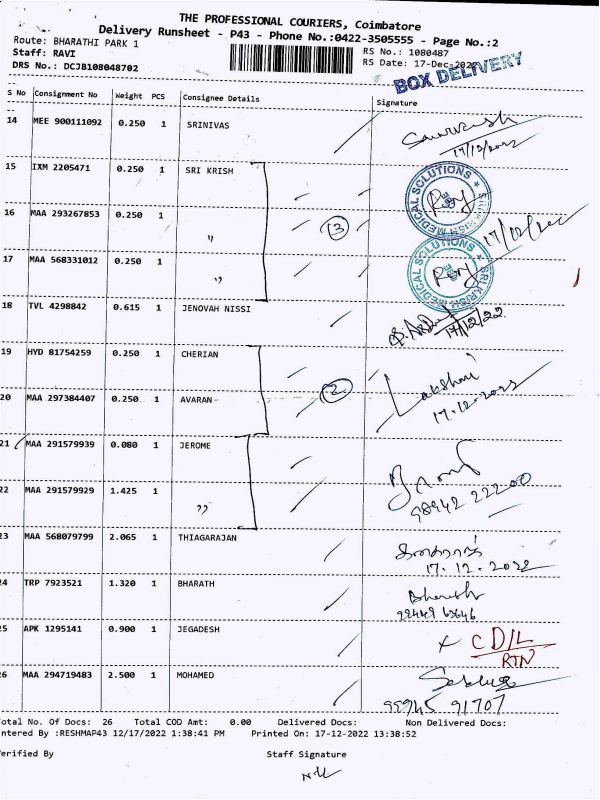 THE PROFESSIONAL COURIERS, Coimbatore
Delivery Runsheet - P43 - Phone No.:0422-3505555 - Page No.:2
Route: BHARATHI PARK 1
RS No.: 1080487
Staff: RAVI
RS Date: 17-Dec-2022
DRS No.: DCJB108048702
BOX DELIVERY
S No Consignment No Weight PCS Consignee Details Signature
14 MEE 900111092 0.250 1 SRINIVAS
17/12/2022
15 IXM 2205471 0.250 1 SRI KRISH
MEDICAL SOLUTIONS
16 MAA 293267853 0.250 1 〃 3
17/12/2022
17 MAA 568331012 0.250 1 〃
SRI KRISH MEDICAL SOLUTIONS
18 TVL 4298842 0.615 1 JENOVAH NISSI
17/12/22
19 HYD 81754259 0.250 1 CHERIAN
2 Lakshmi
20 MAA 297384407 0.250 1 AVARAN
17.12.2022
21 MAA 291579939 0.080 1 JEROME
22 MAA 291579929 1.425 1 〃
98942 22200
23 MAA 568079799 2.065 1 THIAGARAJAN
17.12.2022
24 TRP 7923521 1.320 1 BHARATH Bharath
25 APK 1295141 0.900 1 JEGADESH x CD/L
RTN
26 MAA 294719483 2.500 1 MOHAMED
99945 91707
otal No. Of Docs: 26 Total COD Amt: 0.00 Delivered Docs: Non Delivered Docs:
ntered By :RESHMAP43 12/17/2022 1:38:41 PM Printed On: 17-12-2022 13:38:52
erified By Staff Signature